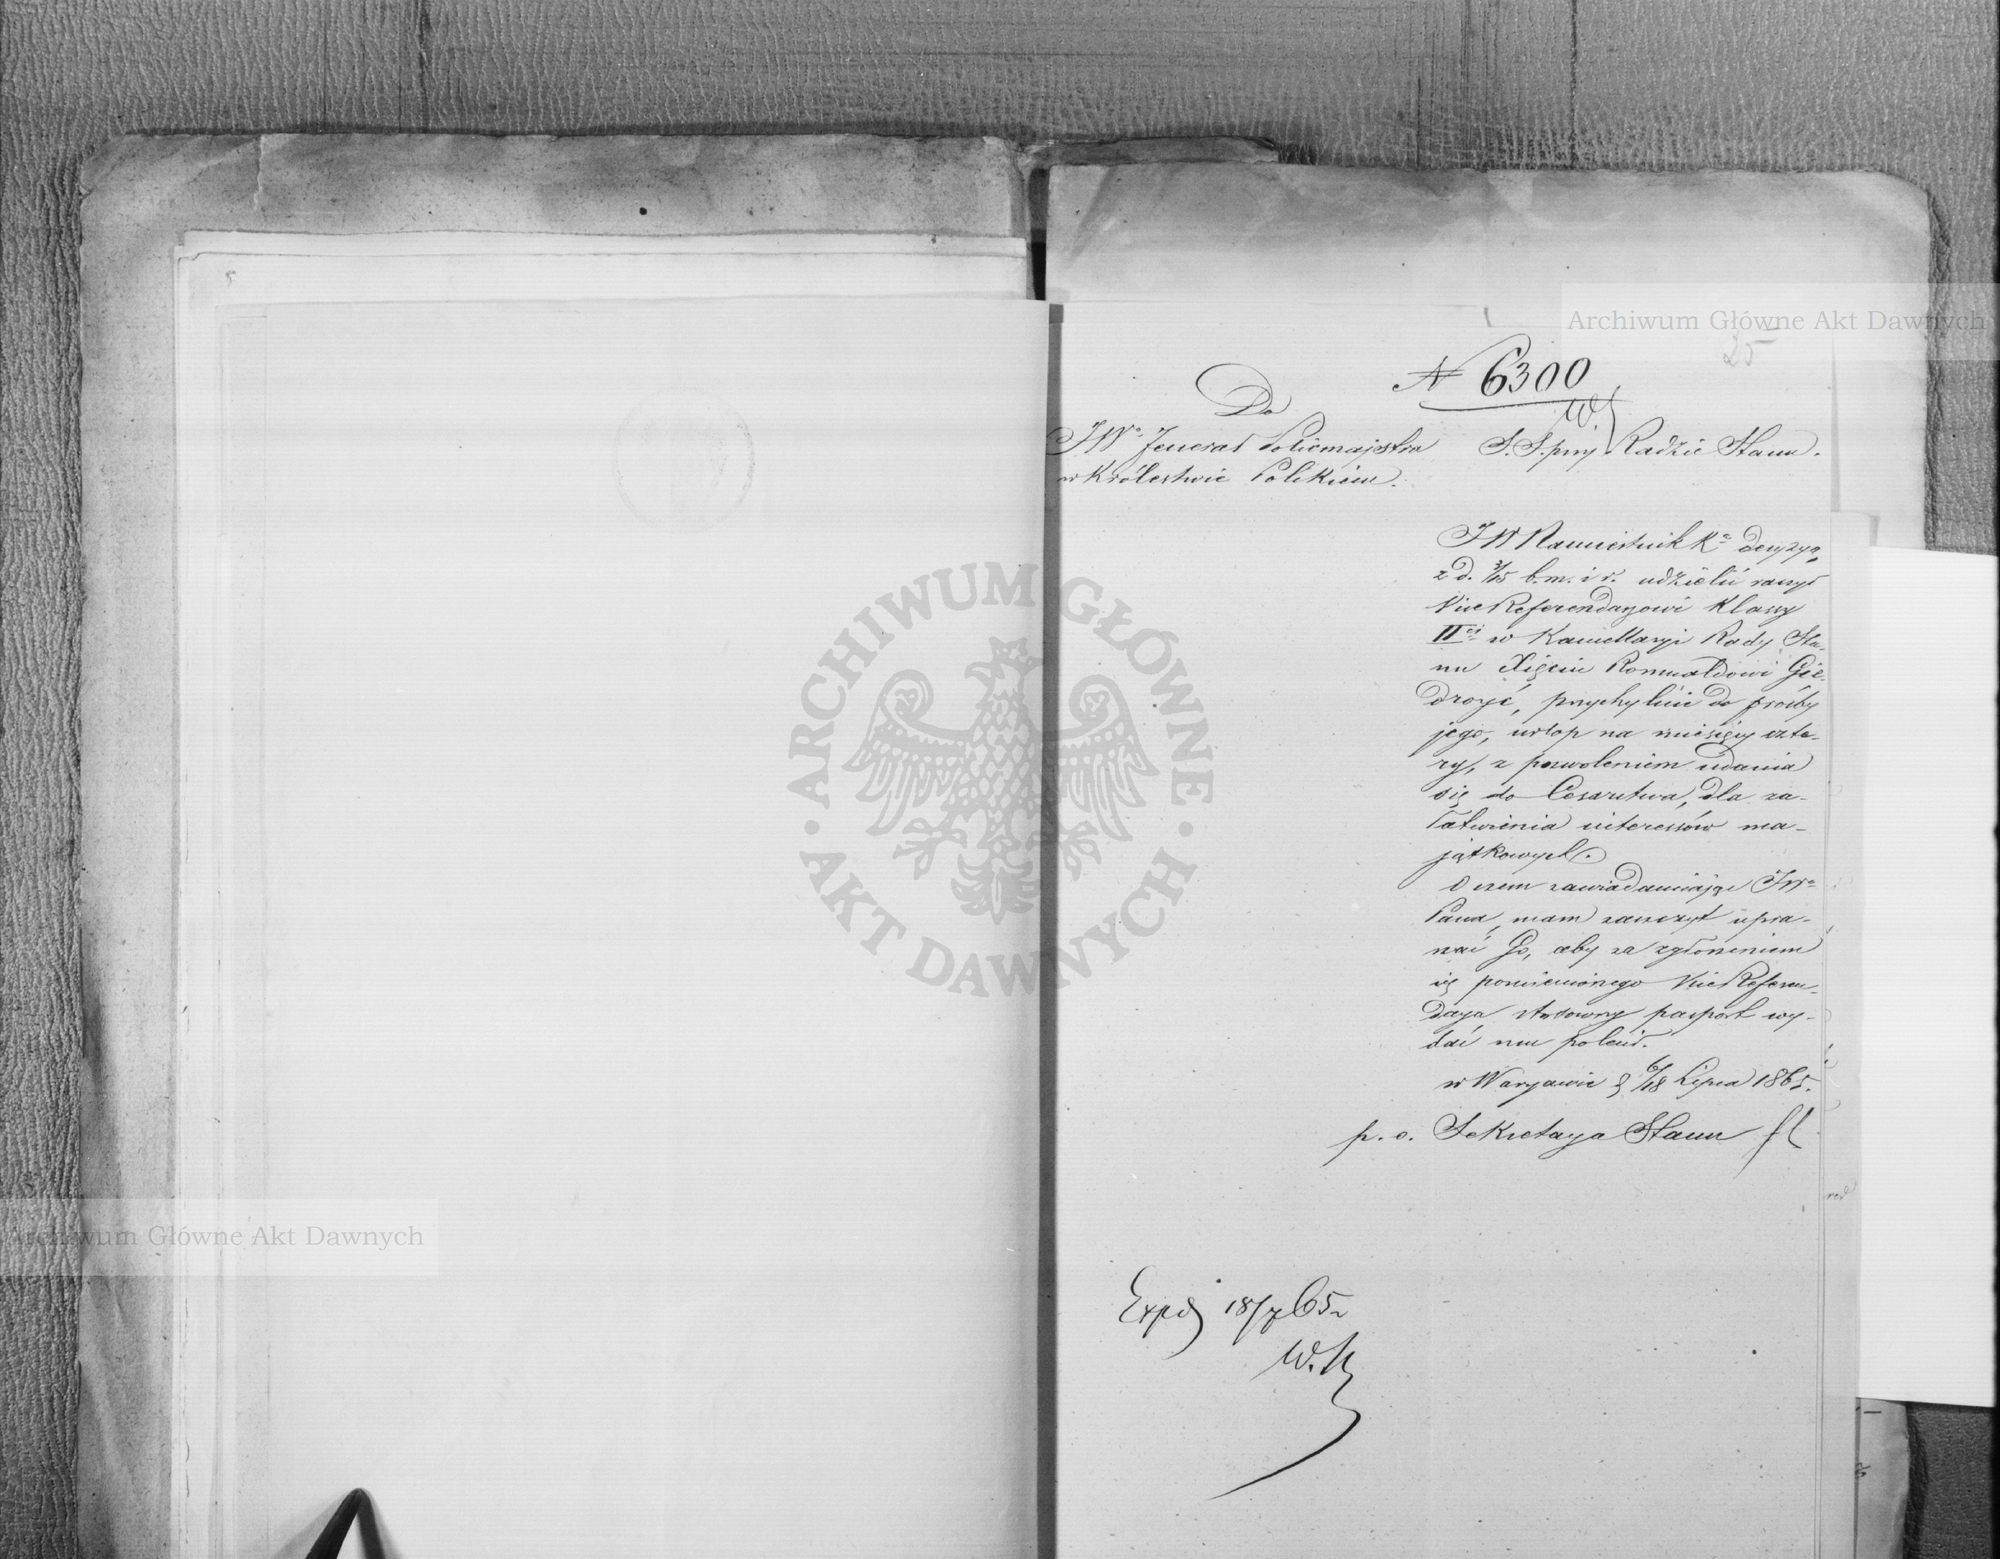 Archiwum Główne Akt Dawnych
25
N 6300
Do
JWo Jenerał Policmajstra
w Królestwie Polskiém.
S. S. przy Radzie Stanu.
JW Namiestnik Ko decyzyą
z d. 3/15 b. m. i r. udzielić raczył
Vice Referendarzowi Klassy
IIéj w Kancellaryi Rady Sta-
nu Xięciu Romualdowi Gie-
droyć, przychylnie do prośby
jego, urlop na miesięcy czte-
ry, z pozwoleniem udania
się do Cesarstwa, dla za-
łatwienia interessów ma-
jątkowych.
O czem zawiadamiając JWo
Pana, mam zaszczyt upra-
szać Go, aby za zgłoszeniem
się pomienionego Vice Referen-
darza stosowny pasport wy-
dać mu polecił.
w Warszawie d 6/18 Lipca 1865.
p. o. Sekretarza Stanu
Exped 18/7 65r
W. K
ARCHIWUM GŁÓWNE
AKT DAWNYCH
Archiwum Główne Akt Dawnych